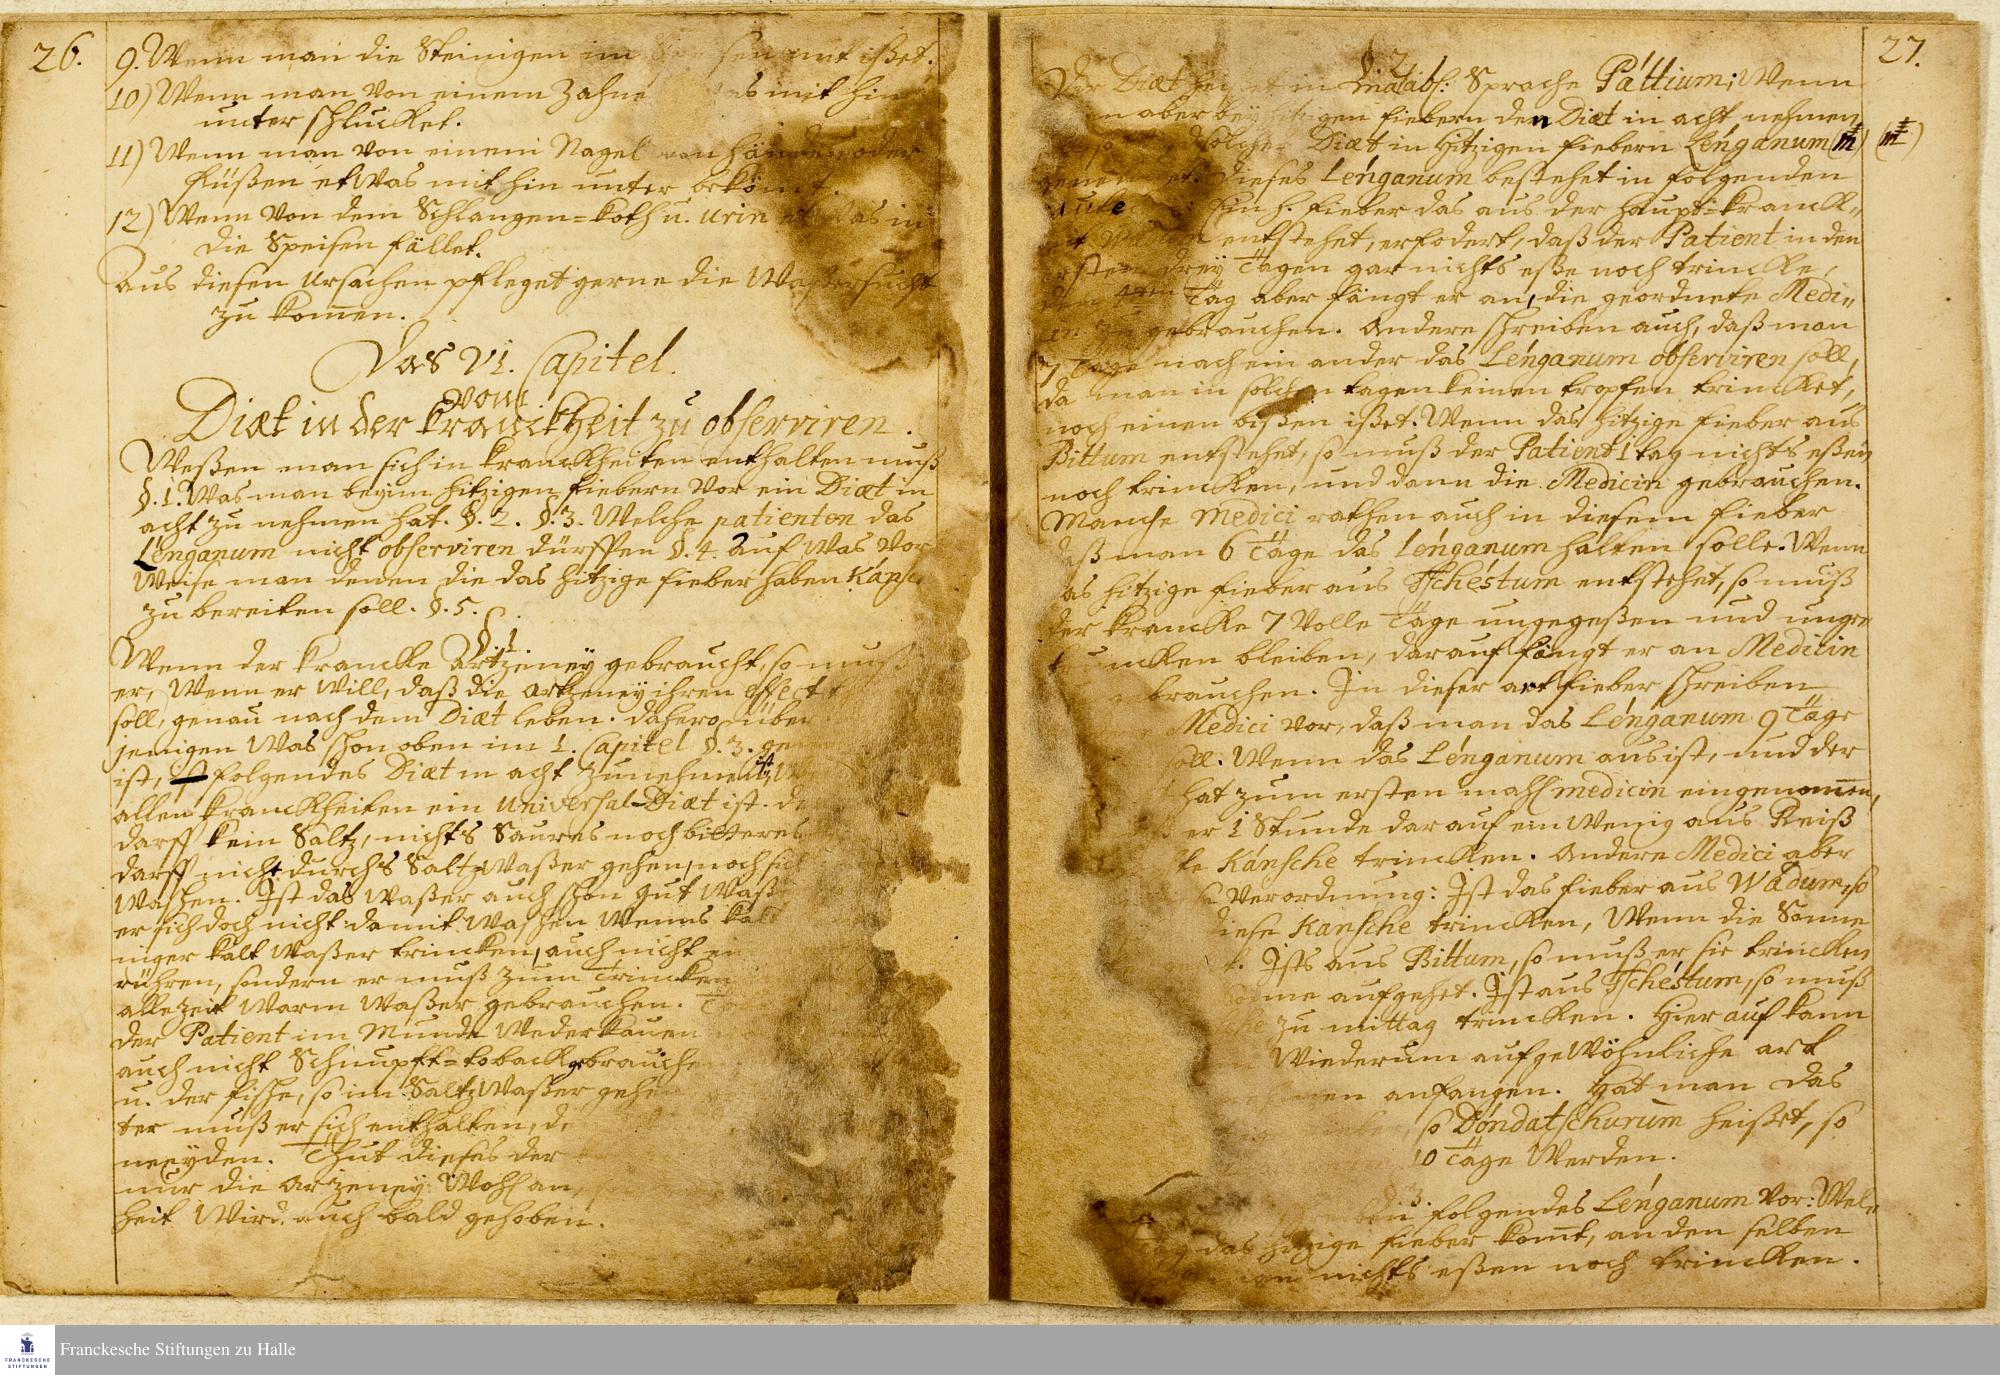 26.
9. Wenn man die Steinigen im sen mit ißet.
10) Wenn man von einem Zahne as mit hin
unter schlucket.
11) Wenn man von einem Nagel von Händen oder
Füßen etwas mit hin unter bekömt.
12) Wenn von dem Schlangen=koth u. Urin etwas in
die Speisen fället.
Aus diesen Ursachen pfleget gerne die Waßersucht
zu kom̅en.
Das VI. Capitel.
vom
Diæt in der Kranckheit zu observiren.
Weßen man sich in Kranckheiten enthalten muß
§.1. Was man beym hitzigen Fiebern vor ein Diæt in
acht zu nehmen hat. §.2. §.3. Welche patienten das
Lénganum nicht observiren dürffen §.4. Auf was vor
Weise man denen die das hitzige Fieber haben Kánsc
zu bereiten soll. §.5.
§.1.
Wenn der Krancke Artzeney gebraucht, so muß
er, wenn er will, daß die Artzeney ihren effect
soll, genau nach dem Diæt leben. Dahero über
jenigen was schon oben im 1. Capitel §.3. gem
ist, folgendes Diæt in acht zunehmen,
allen Kranckheiten ein Universal-Diæt ist.
darff kein Saltz, nichts Saures noch bitteres
darff nicht durchs Saltzwaßer gehen, noch sich
waschen. Ist das Waßer auch schon gut Waß
er sich doch nicht damit waschen wenns kalt
niger kalt Waßer trincken, auch nicht
rühren, sondern er muß zum Trincken
allezeit warm Waßer gebrauchen.
der Patient im Munde weder kauen
auch nicht Schnupff=toback gebrauche
u. der Fische, so im Saltzwaßer gehen
ter muß er sich enthalten,
meyden. Thut dieses der
nur die Artzeney wohl an,
heit wird auch bald gehoben.
27.
§.2.
Der Diæt heißet in Malab: Sprache Páttium; Wenn
man aber bey hitzigen Fiebern den Diæt in acht nehmen
so solcher Diæt in hitzigen Fiebern Lénganum
genennet. Dieses Lénganum bestehet in folgenden
Ein h. Fieber das aus der Haupt=Kranck-
heit entstehet, erfodert, daß der Patient in den
ersten drey Tägen gar nichts eße noch trincke,
den 4ten Tag aber fängt er an, die geordnete Medi-
zu gebrauchen. Andere schreiben auch, daß man
7 Tage nach ein ander das Lénganum observiren soll,
da man in solchen tagen keinen tropfen trincket,
noch einen bißen ißet. Wenn das hitzige Fieber aus
Bittum entstehet, so muß der Patient 1 tag nichts eßen
noch trincken, und dann die Medicin gebrauchen.
Manche Medici rathen auch in diesem Fieber
daß man 6 Täge das Lénganum halten solle. Wenn
das hitzige Fieber aus Tschéstum entstehet, so muß
der Krancke 7 volle Täge ungegeßen und unge-
truncken bleiben, darauf fängt er an Medicin
brauchen. In dieser art Fieber schreiben
Medici vor, daß man das Lénganum 9 Täge
soll. Wenn das Lénganum aus ist, und der
hat zum ersten mahl medicin eingenom̅en,
er 1 Stunde darauf ein wenig aus Reiß
Kánsche trincken. Andere Medici aber
Verordnung: Ist das Fieber aus Wadum, so
diese Kansche trincken, wenn die Sonne
Ists aus Bittum, so muß er sie trincken
Sonne aufgehet. Ist aus Tschéstum, so muß
zu mittag trincken. Hier auf kann
wiederum auf gewöhnliche art
anfangen. Hat man das
so Dóndatschurum heißet, so
10 Täge werden.
§.3.
folgendes Lénganum vor: Wel-
Tag das hitzige Fieber kom̅t, an den selben
man nichts eßen noch trincken.
Franckesche Stiftungen zu Halle
FRANCKESCHE
STIFTUNGEN